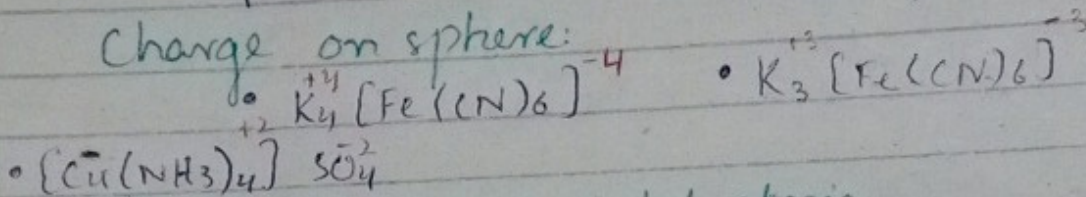 Charge on sphere:
• K₄⁺⁴ [Fe(CN)6]⁻⁴ • K₃⁺³ [Fe(CN)6]⁻³
• [Cu(NH3)4]⁺² SO₄⁻²